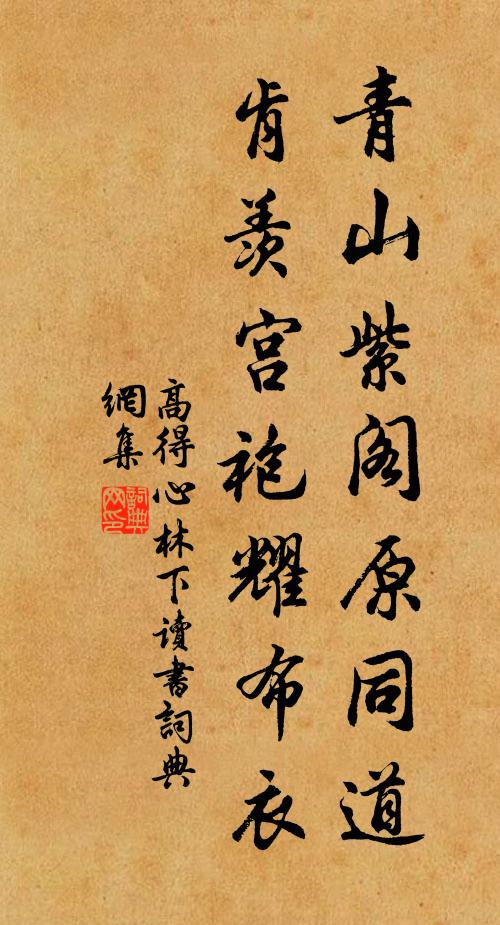 青山紫阁原同道
肯羡宫袍耀布衣
高得心林下讀書詞典
網集
詞典
网印